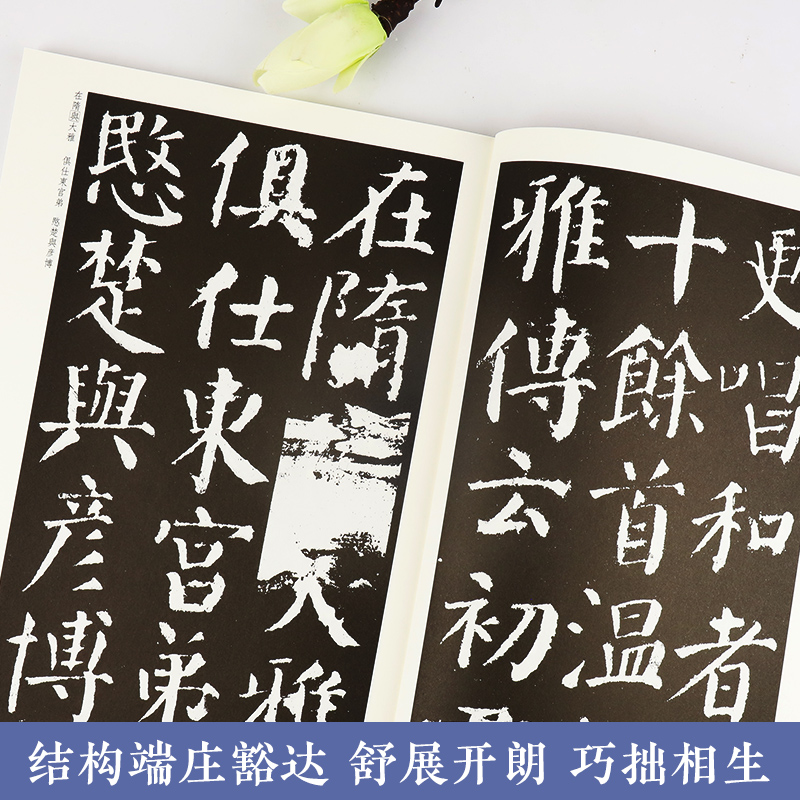 更唱和者
十餘首温
雅傳云初
在隋大雅
俱仕東宮弟
愍楚與彦博
在隋與大雅 俱仕東宮弟 愍楚與彦博
结构端庄豁达 舒展开朗 巧拙相生